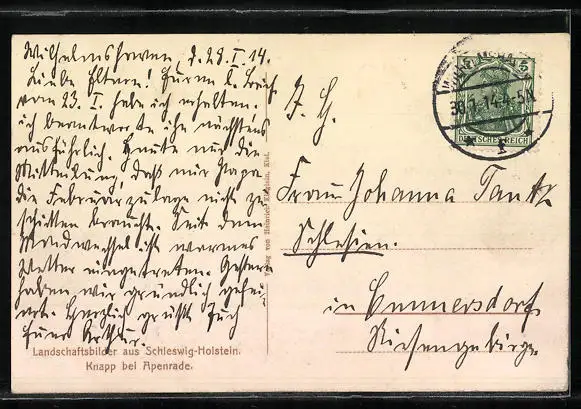 Wilhelmshaven, d. 28. I. 14.
Liebe Eltern! Euren l. Brief
vom 23. I. habe ich erhalten.
ich beantworte ihn nächstens
ausführlich. Heute nur die
Mitteilung, daß mir Papa
die Februarzulage nicht zu
schicken braucht. Seit dem
Mondwechsel ist warmes
Wetter eingetreten. Gestern
haben wir gründlich gefei-
ert. Herzlich grüßt Euch
Euer Arthur.
Landschaftsbilder aus Schleswig-Holstein.
Knapp bei Apenrade.
Verlag von Heinrich Kiel.
5
DEUTSCHES REICH
1.14.4-5N
Frau Johanna Tantz
Schlesien.
in Emmersdorf
Riesengebirge